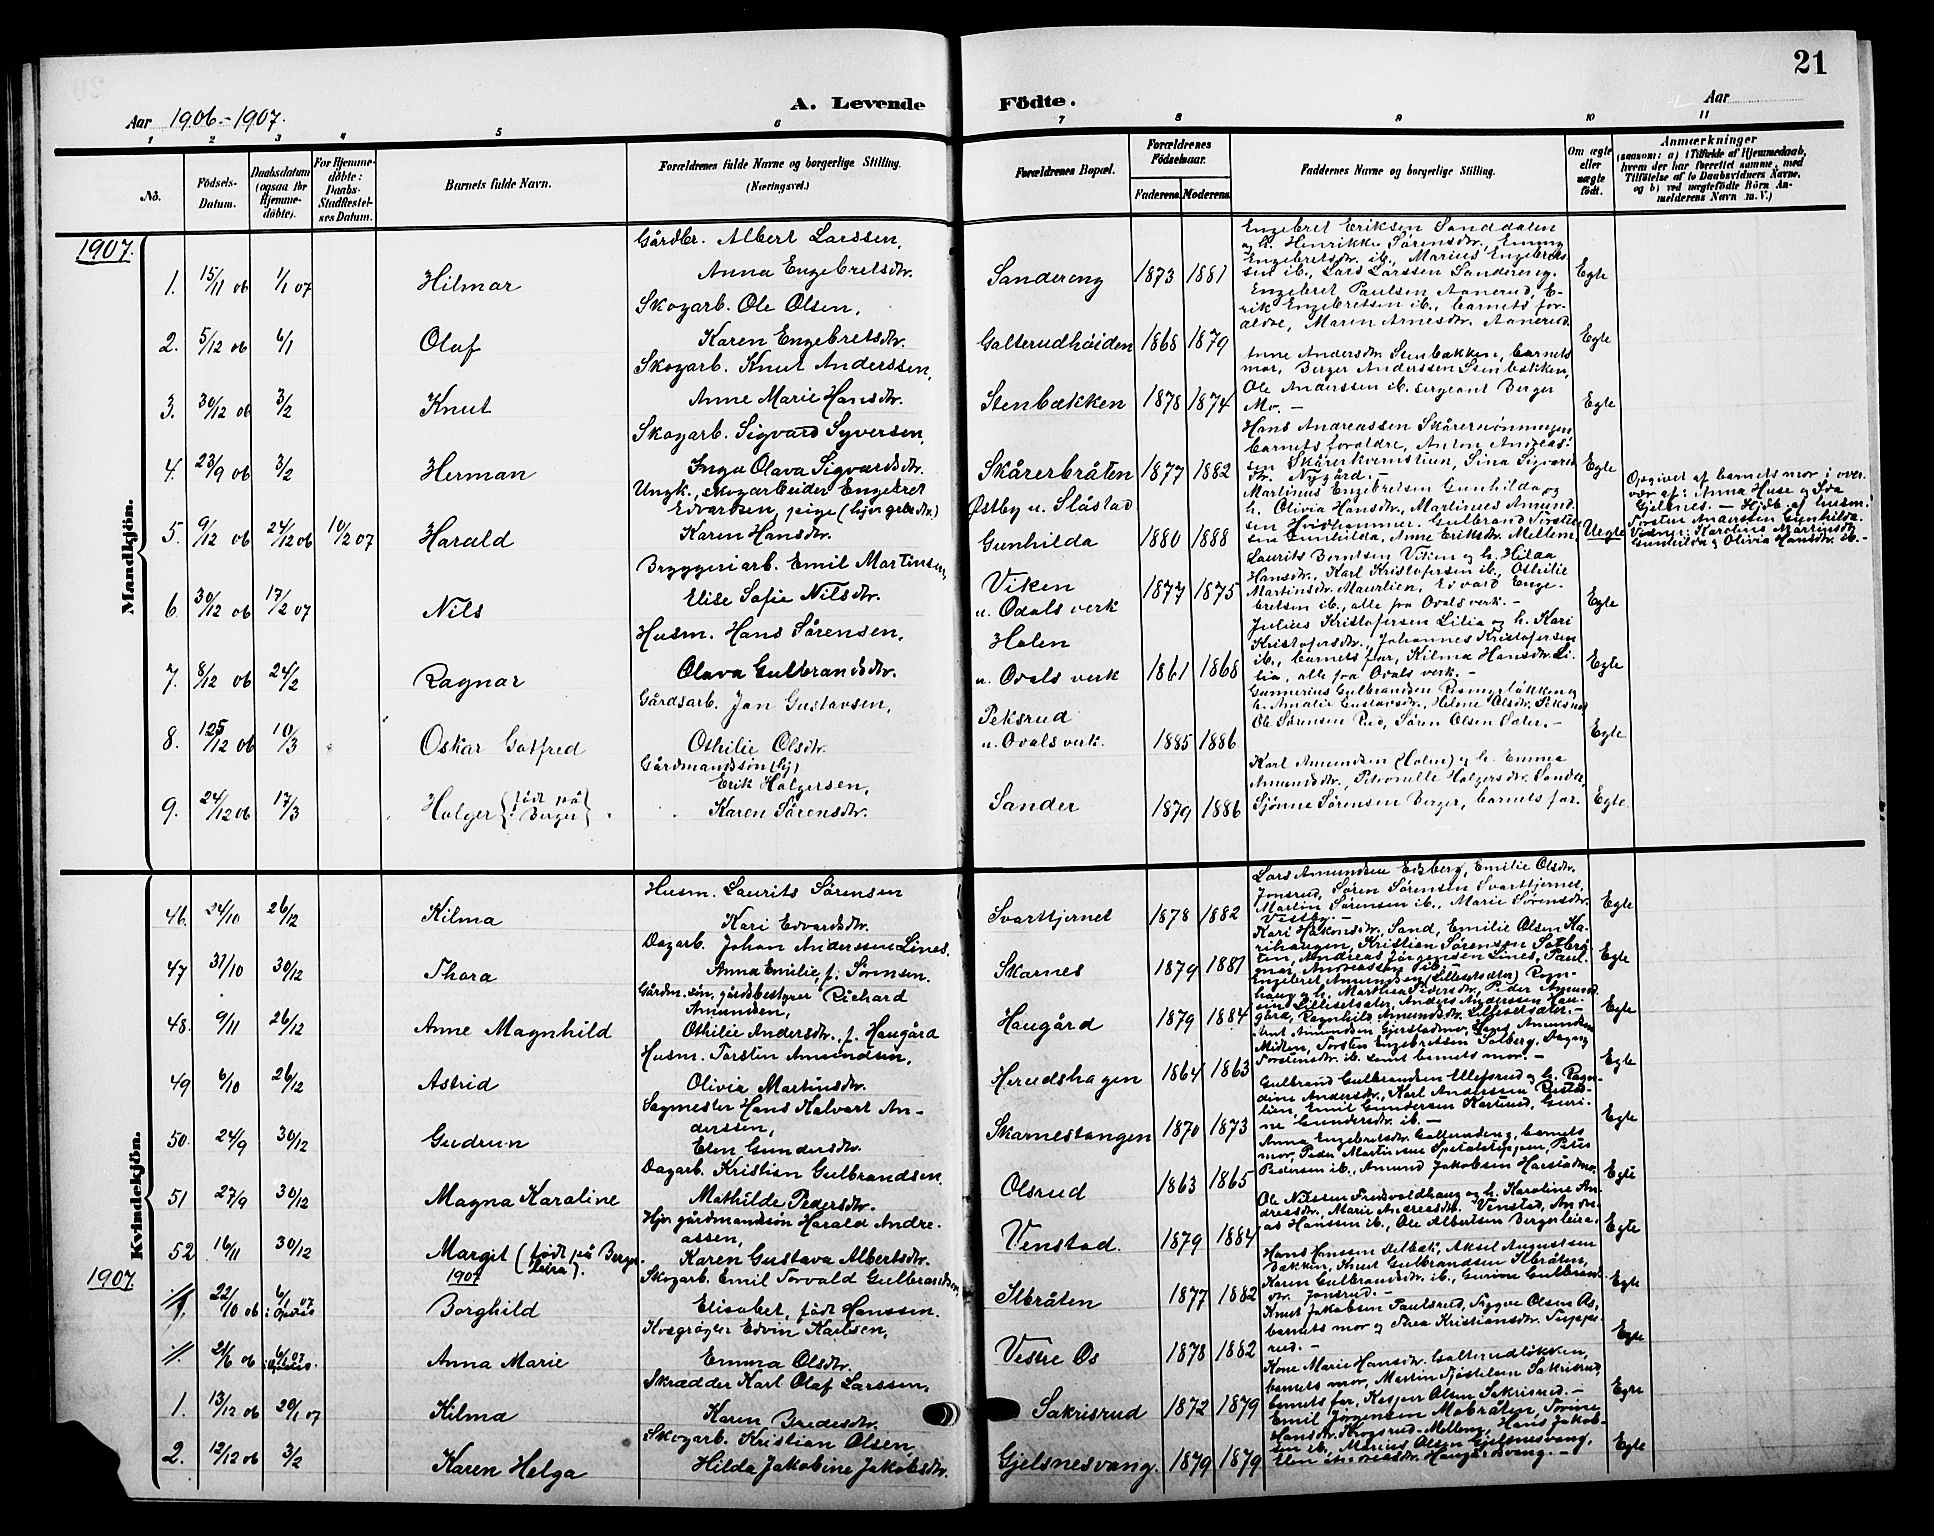 21
Aar 1906-1907.
A. Levende Födte.
Aar
1 2 3 4 5 6 7 8 9 10 11
No.
Födsels-Datum.
Daabsdatum (ogsaa for Hjemme-döbte).
For Hjemme-döbte: Daabs-Stadfæstel-ses Datum.
Barnets fulde Navn.
Forældrenes fulde Navne og borgerlige Stilling. (Næringsvei.)
Forældrenes Bopæl.
Forældrenes Födselsaar.
Faderens. Moderens.
Faddernes Navne og borgerlige Stilling.
Om ægte eller uægte födt.
Anmærkninger (saasom: a) i Tilfælde af Hjemmedaab, hvem der har forrettet samme, med Tilföielse af to Daabsvidners Navne, og b) ved uægtefödte Börn An-melderens Navn m. V.)
1907.
Mandkjön.
1. 15/11 06 1/1 07 Hilmar
Gårdbr. Albert Larssen,
Anna Engebretsdtr.
Sandereng 1873 1881
Engebret Eriksen Sanddalen
og h. Henrikke Sørensdtr., Emma
Engebretsdtr. ib., Marius Engebret-
sen ib., Lars Larssen Sandereng.
Egte
2. 5/12 06 6/1 Olaf
Skogarb. Ole Olsen,
Karen Engebretsdtr.
Galterudhöiden 1868 1879
Engebret Paulsen Aanerud, E-
rik Engebretsen ib., barnets for-
ældre, Maren Arnesdtr. Aanerud.
Egte
3. 30/12 06 3/2 Knut
Skogarb. Knut Anderssen,
Anne Marie Hansdtr.
Stenbækken 1878 1874
Anne Andersdtr. Stenbækken, barnets
mor, Berger Anderssen Stenbækken,
Ole Anderssen ib. sergeant Berger
Mo. -
Egte
4. 23/9 06 3/2 Herman
Skogarb. Sigvard Syversen,
Inga Olava Sigvardsdtr.
Skårerbråten 1877 1882
Hans Andreassen Skårerrønningen
barnets forældre, Anton Andreas-
sen Skårerkvernstuen, Sina Sigvards-
dtr. Nygård.
Egte
5. 9/12 06 24/12 06 10/2 07 Harald
Ungk., skogarbeider Engebret
Edvardsen, pige (hjv. grbr. dtr.)
Karen Hansdtr.
Østby u. Slåstad
Gunhilda 1880 1888
Martinus Engebretsen Gunhilda og
h. Olivia Hansdtr., Martinus Amund-
sen Hvidhammer. Gulbrand Torste-
sen Gunhilda, Anne Eriksdtr. Mellem
Uegte
Opgivet af barnets mor i over-
vær af: Anna Huse og Ida
Gjelnes. - Hjdb. af husm.
Torsten Anderssen Gunhilda.
Vidner: Karoline Martinsdtr.
Gunhilda og Olivia Hansdtr. ib. -
6. 30/12 06 17/2 07 Nils
Bryggeriarb. Emil Martinsen
Elise Sofie Nilsdtr.
Viken
u. Odals verk 1877 1875
Laurits Berntsen Viken og h. Hilda
Hansdtr., Karl Kristofersen ib., Othilie
Martinsdtr. Maurlien, Edvard Enge-
bretsen ib., alle fra Odals verk. -
Egte
7. 8/12 06 24/2 Ragnar
Husm. Hans Sørensen,
Olava Gulbrandsdtr.
Holen
u. Odals verk 1861 1868
Julius Kristofersen Lilia og h. Kari
Kristofersdtr., Johannes Kristofersen
ib., barnets far, Kilma Hansdtr. Li-
lia, alle fra Odals verk. -
Egte
8. 25/12 06 10/3 Oskar Gotfred
Gårdsarb. Jan Gustavsen,
Othilie Olsdtr.
Peksrud
u. Odals verk. 1885 1886
Gunnerius Gulbrandsen Rismyrløkken og
h. Amalie Gustavsdtr., Helene Olsdtr. Peksrud
Ole Sørensen Rud, Søren Olsen Sæter. -
Egte
9. 24/12 06 17/3 Holger {født på Berger}
Gårdmandssøn (hj)
Erik Holgersen,
Karen Sørensdtr.
Sander 1879 1886
Karl Amundsen (Holm) og h. Emma
Amundsdtr., Petronelle Holgersdtr. Sander,
Sjønne Sørensen Berger, barnets far.
Egte.
Kvindekjön.
46. 24/10 26/12 Kilma
Husm. Laurits Sørensen
Kari Edvardsdtr.
Svarttjernet 1878 1882
Lars Amundsen Eidsberg, Emilie Olsdtr.
Jonsrud, Søren Sørensen Svarttjernet,
Martin Sørensen ib., Marie Sørensdtr.
Vestby. -
Egte
47 31/10 30/12 Thora
Dagarb. Johan Anderssen Lines.
Anna Emilie, f. Sørensen.
Skarnes 1879 1881
Kari Håkonsdtr. Sand, Emilie Olsen Ka-
rihaugen, Kristian Sørensen Solbrå-
ten, Andreas Jørgensen Lines, Paul-
Egte
48. 9/11 26/12 Anne Magnhild
Gårdm. søn, gårdsbestyrer Richard
Amundsen,
Othilie Andersdtr., f. Haugård
Haugård 1879 1884
Engebret Amundsen (Lillesetsæter) Rogn-
haug og h. Marthea Pedersdtr., Peder Amund-
sen Lillesetsæter, Anders Anderssen Hau-
gård, Ragnhild Amundsdtr. Lillesetsæter. -
Egte
49 6/10 26/12 Astrid
Husm. Torsten Amundsen,
Olivia Martinsdtr.
Herudshagen 1864 1863
Amundsen Gjerstadmo, Hans Amundsen
Midten, Torsten Engebretsen Solberg, Dagny
Torstensdtr. ib. samt barnets mor. -
Egte
50. 24/9 30/12 Gudrun
Sagmester Hans Halvart An-
derssen,
Elen Gundersdtr.
Skarnestangen 1870 1873
Gulbrand Gulbrandsen Ullefsrud og h. Ragn-
dine Andersdtr., Karl Anderssen Rustad-
lien, Emil Gundersen Karlsrud, Guri-
ne Gundersdtr. ib. -
Egte
51 27/9 30/12 Magna Karaline
Dagarb. Kristian Gulbrandsen.
Mathilde Pedersdtr.
Olsrud 1863 1865
Anna Engebretsdtr. Galterudeng, barnets
mor, Peder Martinsen Spetalstoppen, Peter
Pedersen ib., Amund Jakobsen Harstadmo.
Egte
52 16/11 30/12 Margit (født på Berger-
leira).
Hjv. gårdmandssøn Harald Andre-
assen,
Karen Gustava Albertsdtr.
Venstad. 1879 1884
Ole Nilssen Fredvoldhaug og h. Karoline An-
dreasdtr., Marie Andreasdtr. Venstad, Andre-
as Hanssen ib., Ole Albertsen Bergerleira.
Egte
1907.
1907
22/10 06 6/1 07 Borghild
Skogarb. Emil Torvald Gulbrandsen,
Elisabet, født Hanssen.
Ilbråten 1877 1882
Hans Hanssen Delbæk, Aksel Augustsen
Bakken, Knut Gulbrandsen Ilbråten,
Karen Gulbrandsdtr. ib., Gurine Gulbrands-
dtr. Jonsrud. -
Egte
6/1 07 Anna Marie
Kvægrøgter Edvin Karlsen,
Emma Olsdtr.
Vestre Os 1878 1882
Knut Jakobsen Paulsrud, Trygve Olsen Os,
barnets mor og Thea Kristiansdtr. Tuppe-
rud. -
Egte
1. 13/12 06 20/1 07 Kilma
Skrædder Karl Olaf Larssen,
Karen Bredesdtr.
Sakrisrud 1872 1879
Kone Marie Hansdtr. Galterudløkken,
barnets mor, Martin Tjøstelsen Sakrisrud,
barnets far, Kasper Olsen Sakrisrud. -
Egte
2. 12/12 06 3/2 Karen Helga
Skogarb. Kristian Olsen
Hilda Jakobine Jakobsdtr.
Gjelsnesvang. 1879 1879
Emil Jørgensen Mobråten, Trine
Hansdtr. Krogsrud-Melleng, Hans Jakob-
sen ib., Marius Olsen Gjelsnesvang,
Elen Andreasdtr. Haugårdsvang. -
Egte